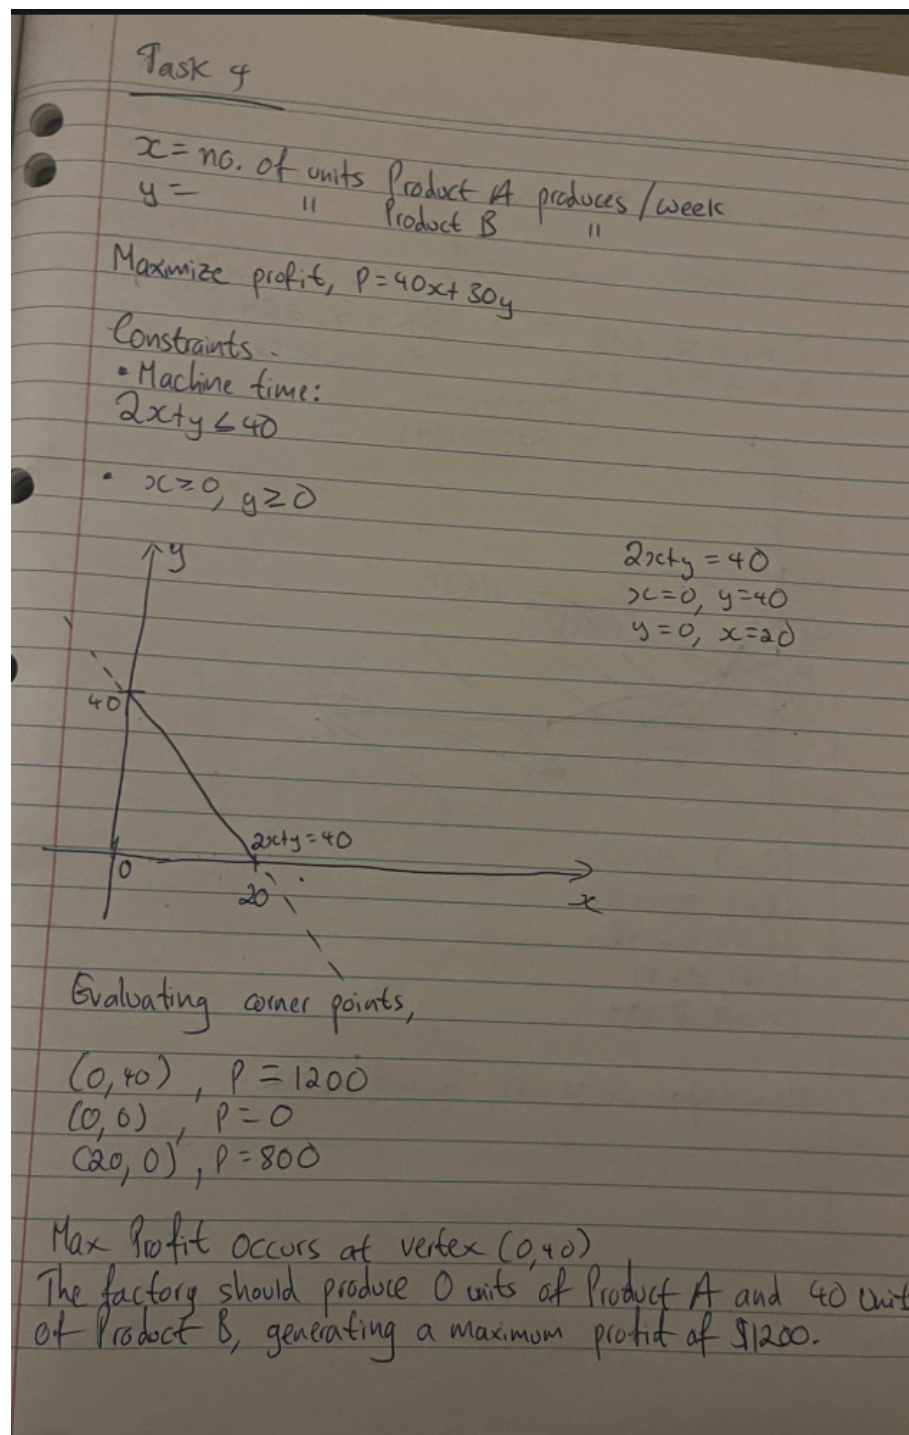 Task 4
x = no. of units Product A produces / week
y = " Product B "
Maximize profit, P = 40x + 30y
Constraints.
• Machine time:
2x+y ≤ 40
• x ≥ 0, y ≥ 0
y
2x+y = 40
x=0, y=40
y=0, x=20
40
2x+y = 40
0
20
x
Evaluating corner points,
(0,40), P = 1200
(0,0), P = 0
(20,0), P = 800
Max Profit occurs at vertex (0,40)
The factory should produce 0 units of Product A and 40 unit
of Product B, generating a maximum profit of $1200.